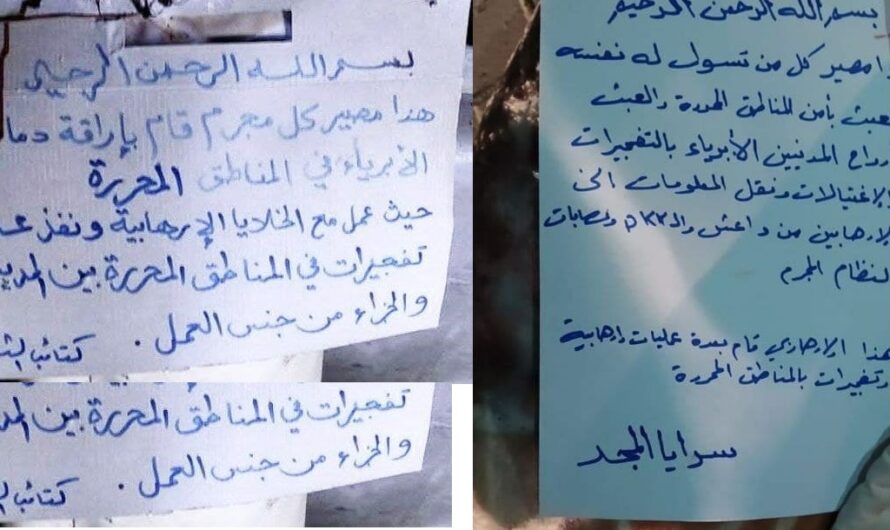 بسم الله الرحمن الرحيم
هذا مصير كل مجرم قام بإراقة دما
الأبرياء في المناطق المحررة
حيث عمل مع الخلايا الإرهابية ونفذ عـ
تفجيرات في المناطق المحررة بين المدي
والجزاء من جنس العمل . كتائب الـ
تفجيرات في المناطق المحررة بين المد
والجزاء من جنس العمل . كتائب
بسم الله الرحمن الرحيم
ا مصير كل من تسول له نفسه
لعبث بأمن المناطق المحررة والعبث
رواح المدنيين الأبرياء بالتفجيرات
الإغتيالات ونقل المعلومات الى
لارهابين من داعش والـ PKK وعصابات
لنظام المجرم
هذا الإرهابي قام بعدة عمليات إرهابية
وتفجيرات بالمناطق المحررة
سرايا المجد